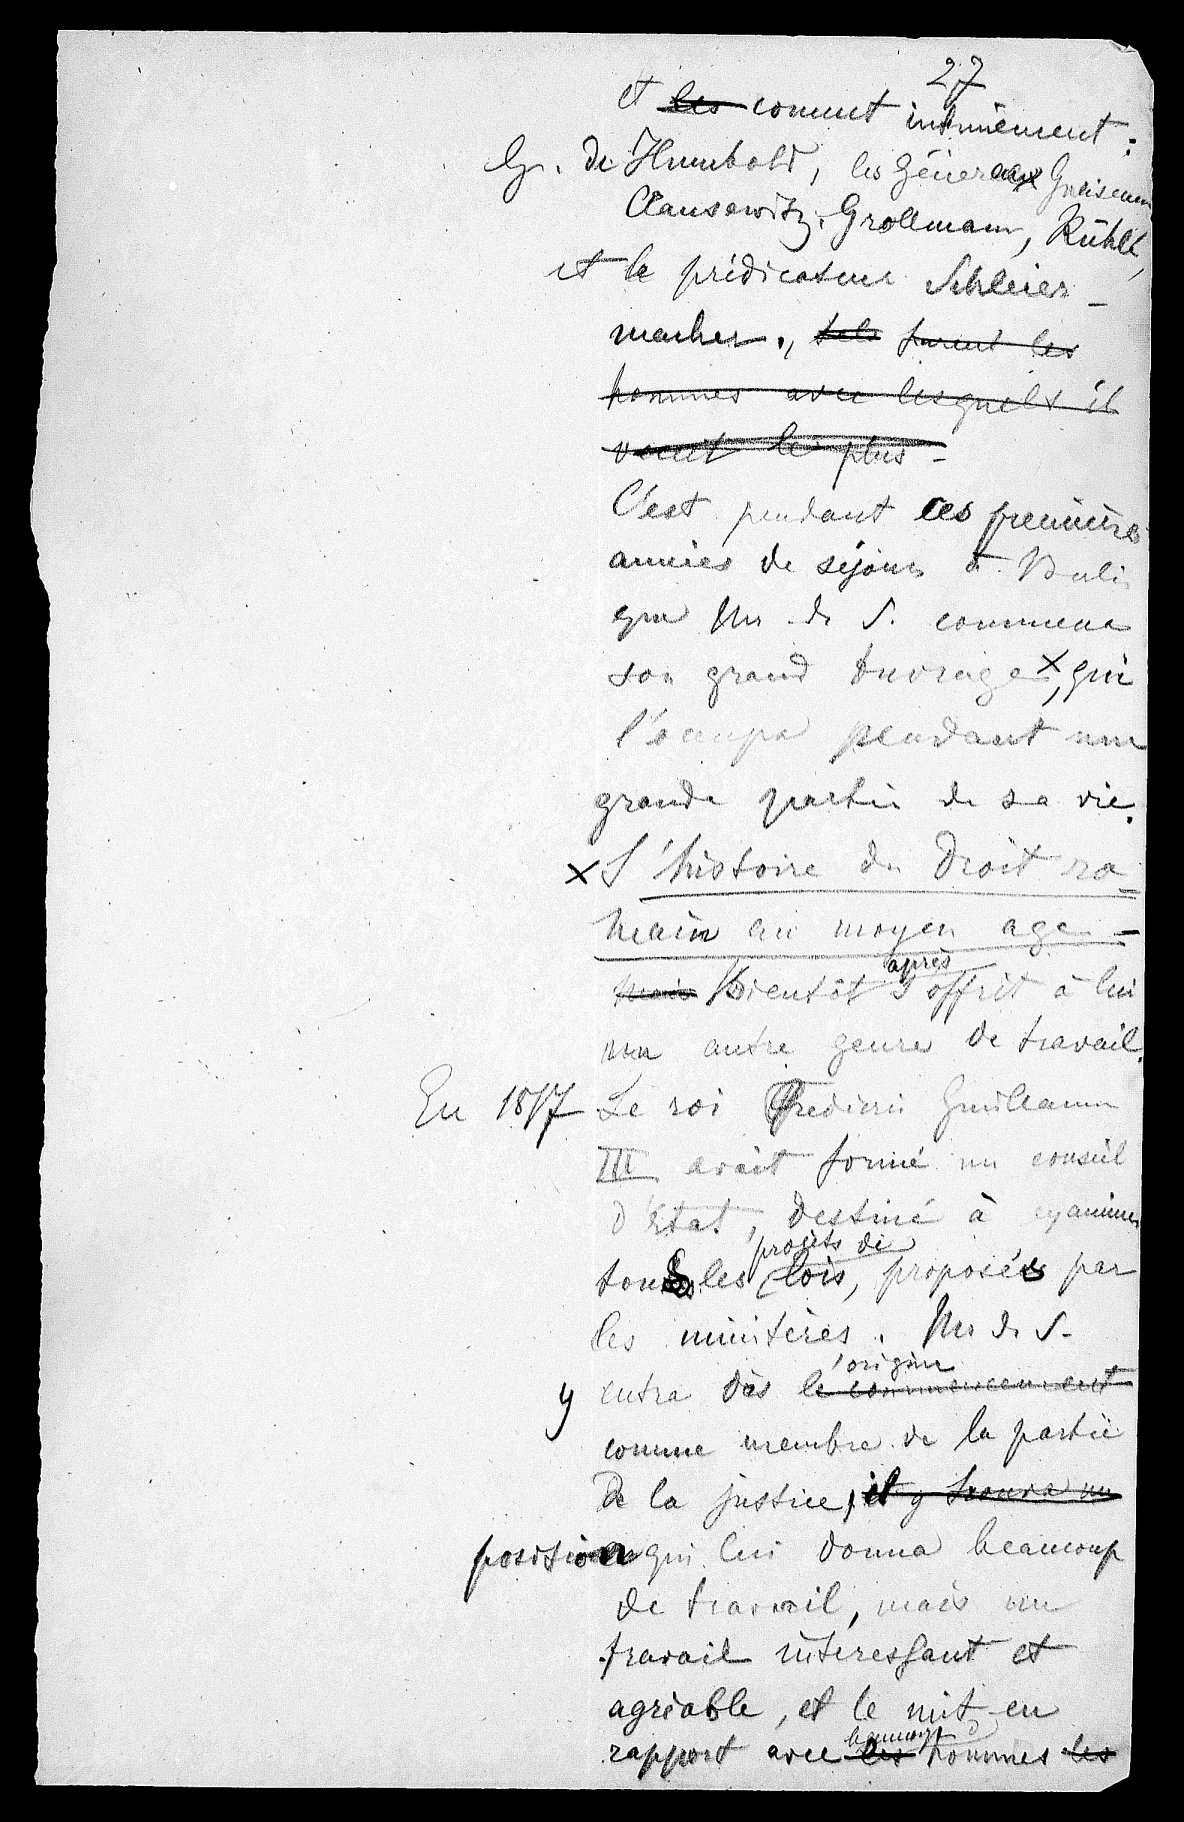 27
et les connut intimément :
G. de Humbold, les généraux Gneisenau
Clausewitz, Grollmann, Rühle,
et le prédicateur Schleier-
macher., tels furent les
hommes avec lesquels il
vécut le plus -
C'est pendant ces premières
années de séjour à Berlin
que Mr. de S. commença
son grand ouvrage x, qui
l'occupa pendant une
grande partie de sa vie.
x L'histoire du Droit ro-
main au moyen age -
mais Bientôt après s'offrit à lui
un autre genre de travail.
En 1817 Le roi Frederic Guilleaume
III avait formé un conseil
d'Etat, destiné à examiner
tous les projets de lois, proposés par
les ministères. Mr de S.
y entra dès l'origine le commencement
comme membre de la partie
de la justice, il y trouva un
position qui lui donna beaucoup
de travail, mais un
travail intéressant et
agréable, et le mit en
rapport avec les beaucoup d'hommes les